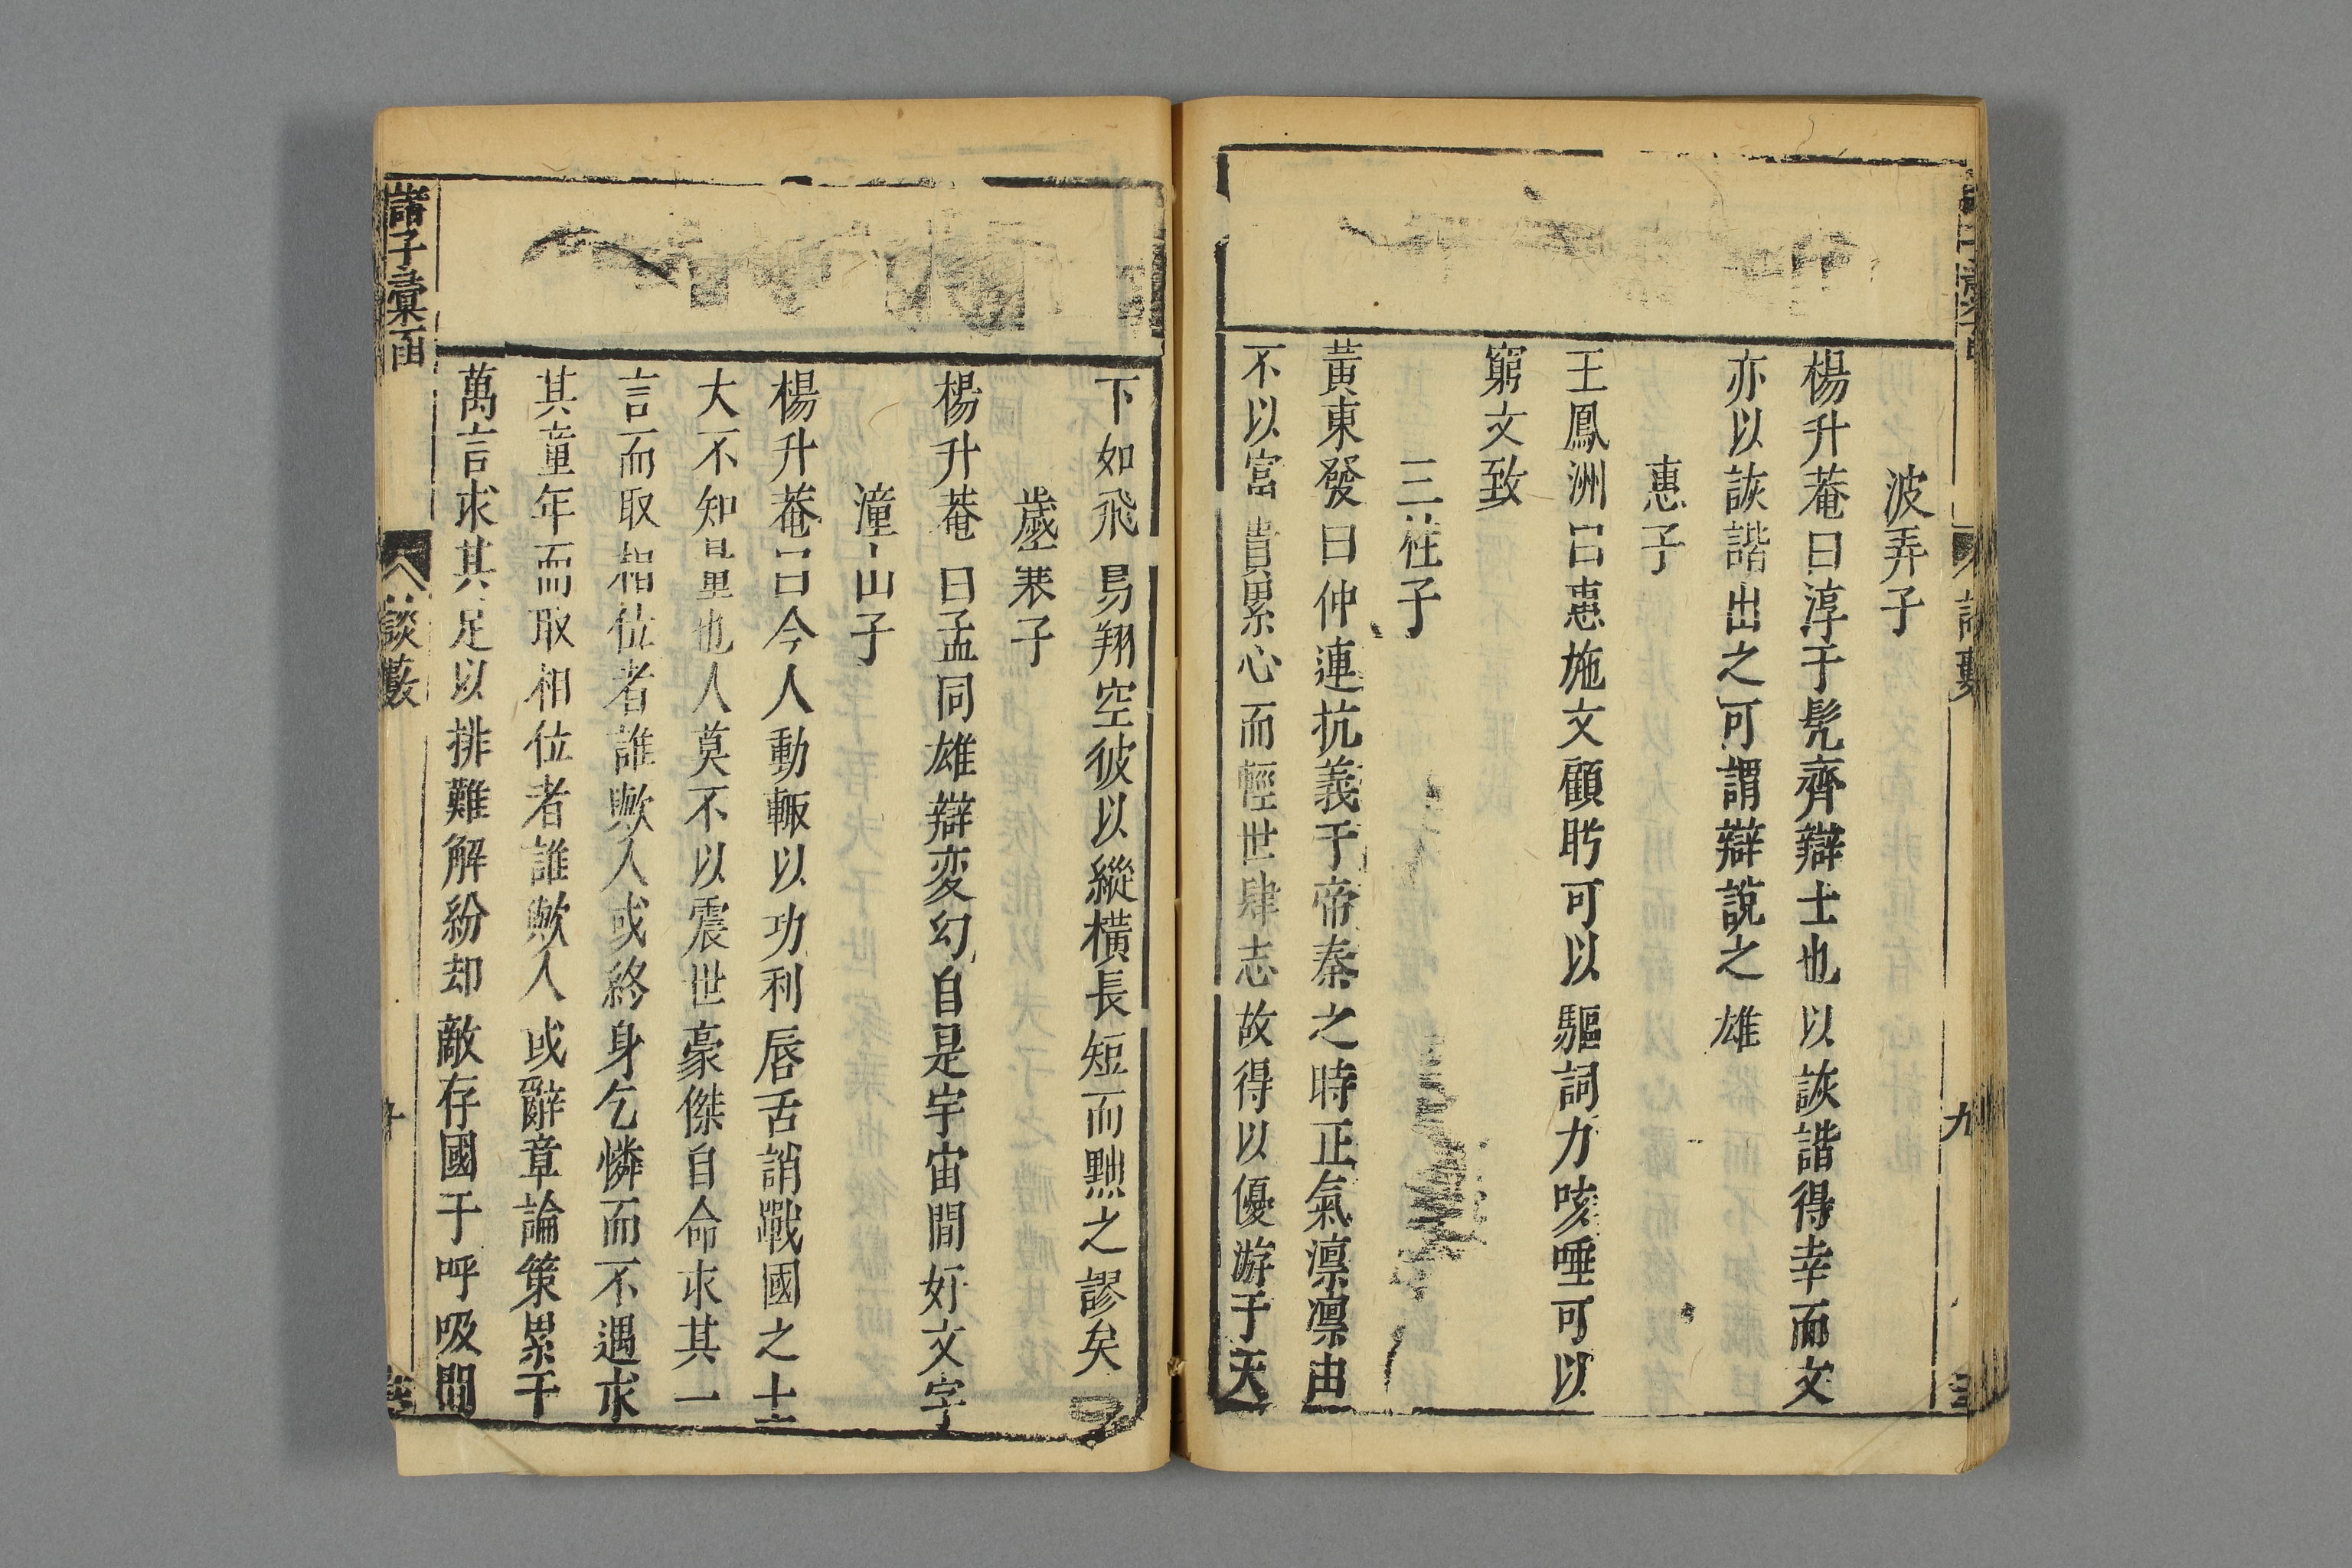 波弄子
楊升菴曰淳于髠齊辯士也以詼諧得幸而文
亦以詼諧出之可謂辯說之雄
惠子
王鳳洲曰惠施文顧盻可以驅詞力咳唾可以
窮文致
三柱子
黃東發曰仲連抗義于帝秦之時正氣凛凛由
不以富貴累心而輕世肆志故得以優游于天
九
下如飛易翔空彼以縱橫長短而黜之謬矣
歲寒子
楊升菴曰孟同雄辯变幻自是宇宙間好文字
潼山子
楊升菴曰今人動輙以功利唇舌誚戰國之士
大不知量也人莫不以震世豪傑自命求其一
言而取相位者誰歟人或終身乞憐而不遇求
其童年而取相位者誰歟人或辭章論策累千
萬言求其足以排難解紛却敵存國于呼吸間
諸子彙函
談藪
十